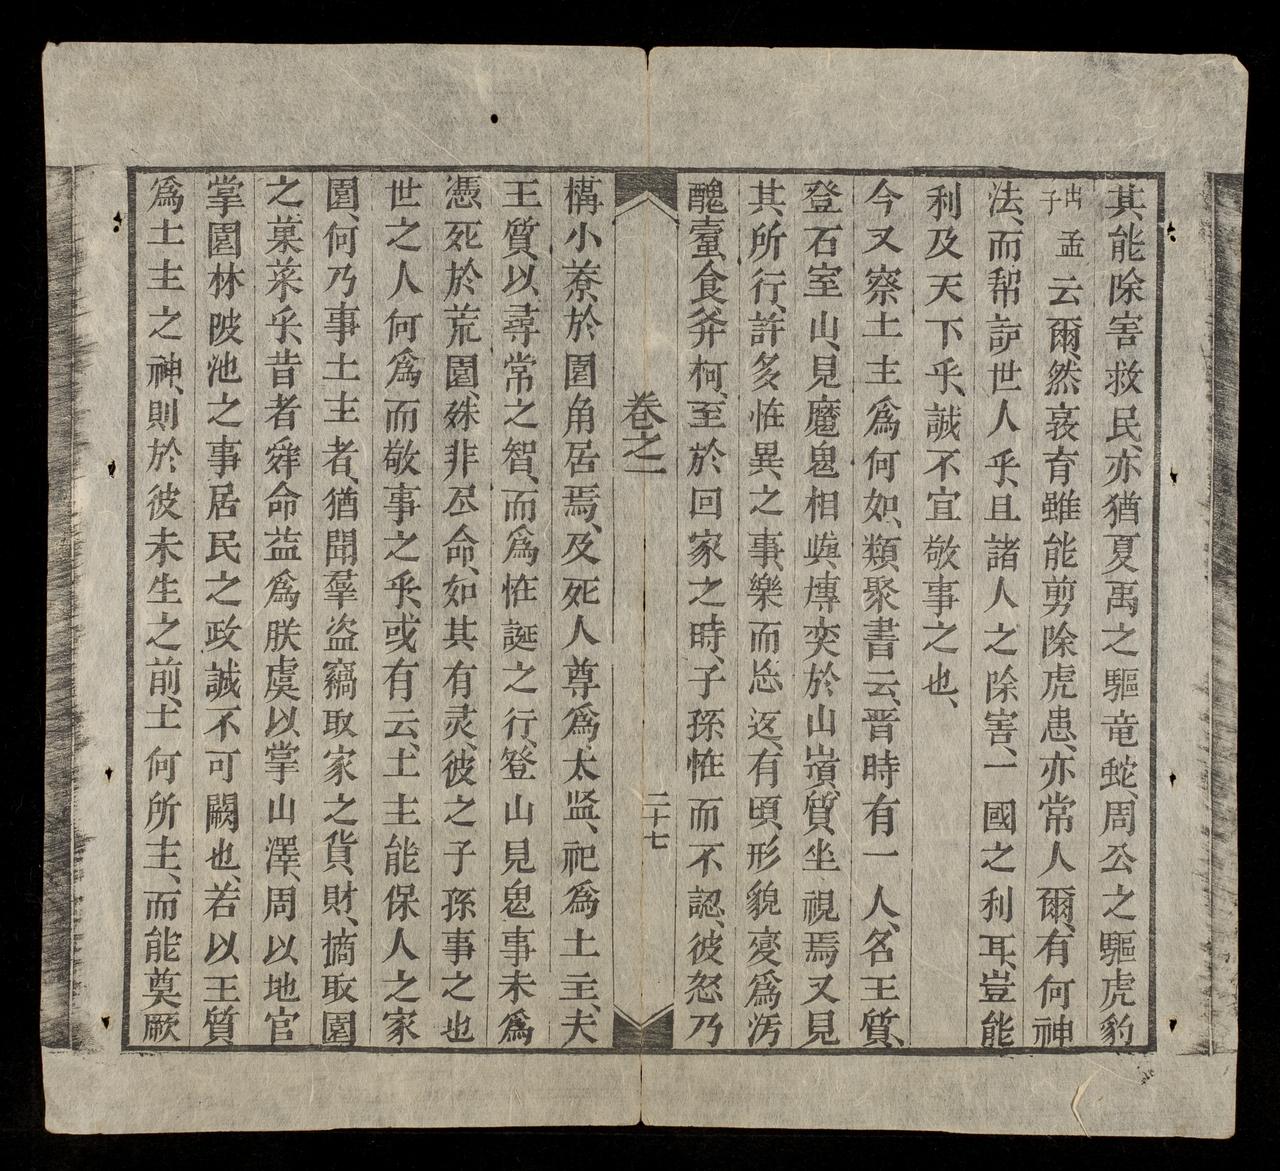 其能除害救民、亦猶夏禹之驅竜蛇、周公之驅虎豹
出孟子云爾、然裴育雖能剪除虎患、亦常人爾、有何神
法、而幇護世人乎、且諸人之除害、一國之利耳、豈能
利及天下乎、誠不宜敬事之也、
今又察土主爲何如、類聚書云、晋時有一人、名王質、
登石室山、見魔鬼相與摶奕於山嶺、質坐視焉又見
其所行、許多恠異之事、樂而忘返、有頃、形貌変爲汚
醜、蠹食斧柯、至於回家之時、子孫恠而不認、彼怒乃
卷之一
二十七
構小藔於園角居焉、及死人尊爲太监、祀爲土主、夫
王質、以尋常之智、而爲恠誕之行、登山見鬼事未爲
憑、死於荒園、殊非丕命、如其有灵、彼之子孫事之也
世之人何爲而敬事之乎、或有云、土主能保人之家
園、何乃事土主者、猶聞羣盗竊取家之貨財、摘取園
之菓菜乎、昔者舜命益爲朕虞以掌山澤、周以地官
掌園林陂池之事居民之政誠不可闕也、若以王質
爲土主之神、則於彼未生之前、土何所主、而能奠厥